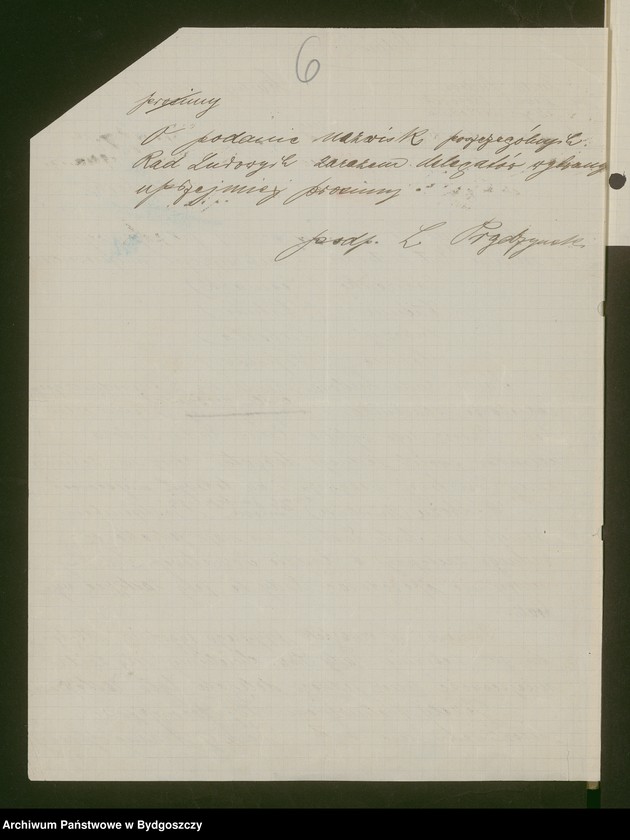 6
prosimy
O podanie nazwisk poszczególnych
Rad Ludowych zarazem delegatów wybranych
uprzejmiej prosimy.
podp. L
Archiwum Państwowe w Bydgoszczy